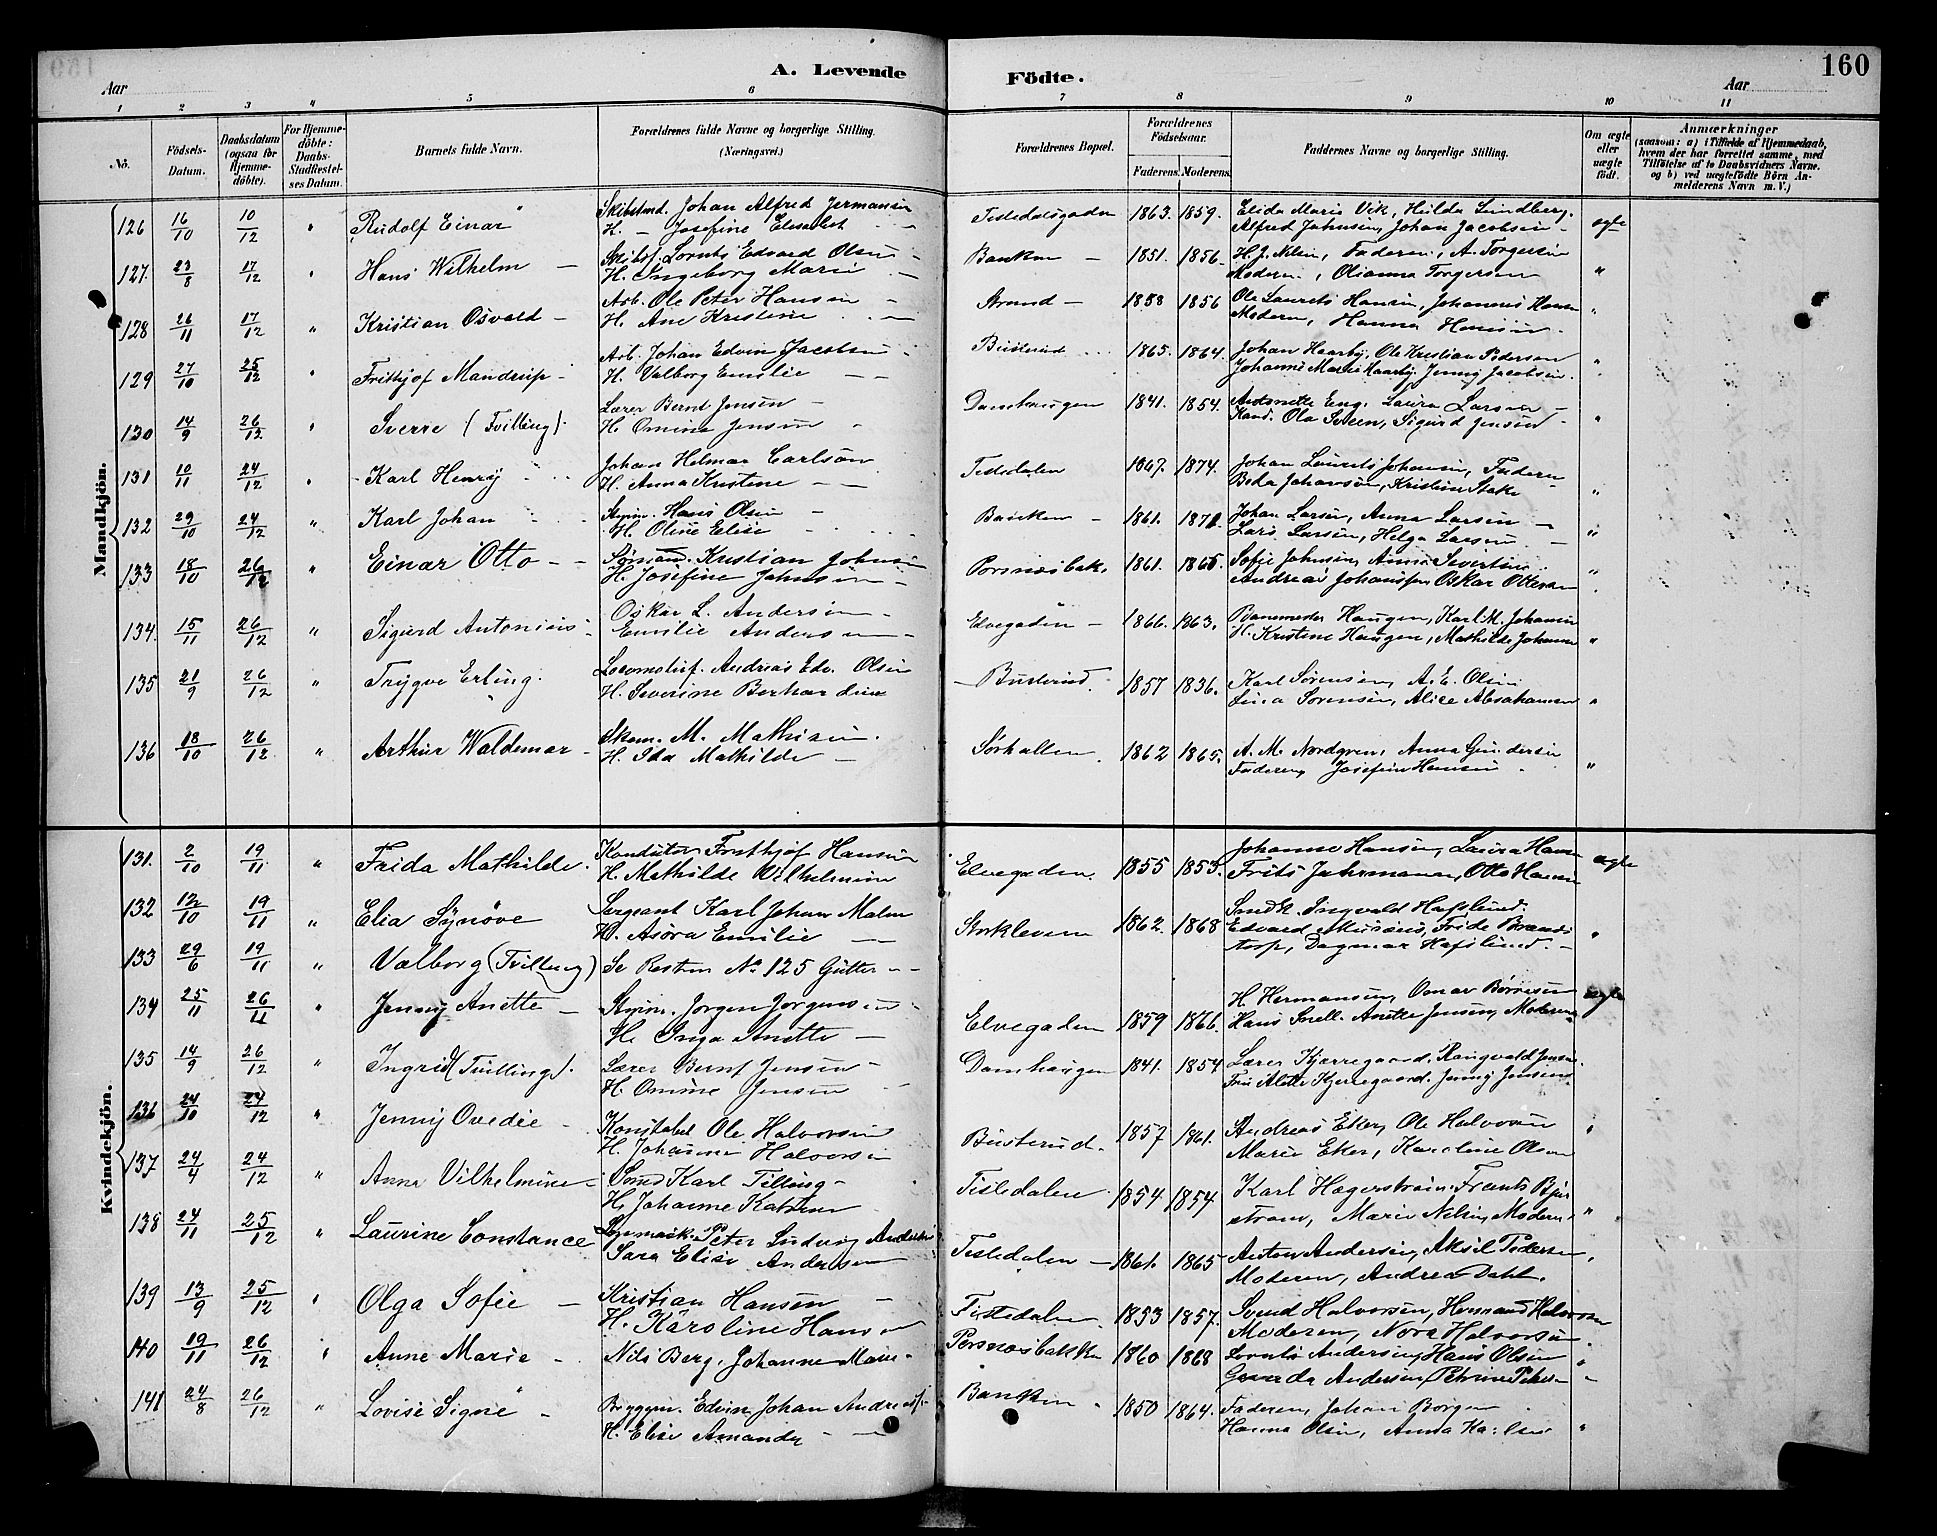 160
A. Levende Födte.
Aar Aar
1 2 3 4 5 6 7 8 9 10 11
No. Födsels-Datum. Daabsdatum (ogsaa for Hjemme-döbte). For Hjemme-döbte: Daabs-Stadfæstel-ses Datum. Barnets fulde Navn. Forældrenes fulde Navne og borgerlige Stilling. (Næringsvei.) Forældrenes Bopæl. Forældrenes Födselsaar. Faderens. Moderens. Faddernes Navne og borgerlige Stilling. Om ægte eller uægte födt. Anmærkninger (saasom: a) i Tilfælde af Hjemmedaab, hvem der har forrettet samme, med Tilföielse af to Daabsvidners Navne. og b) ved uægtefödte Börn An-melderens Navn m. V.)
Mandkjön.
126 16/10 10/12 " Rudolf Einar Skibstmd. Johan Alfred Jermansen Tistedalsgaden 1863. 1859. Elida Marie Vik, Hilda Lundberg. ægte
H. — Josefine Elisabet Alfred Johnsen, Johan Jacobsen
127. 23/8 17/12 " Hans Wilhelm — Skibst. Lorents Edvard Olsen Banken — 1851. 1856. H. J. Klein, Faderen, A. Torgersen "
H. Ingeborg Marie — Moderen, Olianna Torgersen
128 26/11 17/12 " Kristian Osvald — Arb. Ole Peter Hansen — Strand — 1858 1856 Ole Laurits Hansen, Johannes Hansen "
H. Ane Kristine Moderen, Hanna Hansen
129 27/10 25/12 " Frithjof Mandrup — Arb. Johan Edvin Jacobsen Busterud 1865. 1864. Johan Haarby, Ole Kristian Pedersen "
H. Valborg Emilie — Johanne Marie Haarby, Jenny Jacobsen.
130 14/9 26/12 " Sverre (Tvilling). Lærer Bernt Jensen — Damhaugen 1841. 1854. Antonette Eng, Laura Larsen "
H. Omine Jensen Kand. Ola Sveen, Sigurd Jensen
131 10/11 24/12 " Karl Henry Johan Helmar Carlson Tistedalen 1867. 1874. Johan Laurits Johansen, Faderen "
H. Anna Kristine — Beda Johanson, Kristine Stake
132 29/10 24/12 " Karl Johan Hans Olsen Banken — 1861. 1871. Johan Larsen, Anna Larsen — "
H. Oline Elise Lars Larsen, Helga Larsen —
133 18/10 26/12 " Einar Otto — Sömand. Kristian Johnsen 1861. 1865. Sofie Johnsen, Anna Severtine "
H. Josefine Johnsen — Andreas Johansen, Oskar Ottesen
134. 15/11 26/12 " Sigurd Antonius Oskar L. Andersen — Elvegaden — 1866. 1863. Banemester Haugen, Karl M. Johansen
Emilie Andersen — H. Kristine Haugen, Mathilde Johansen "
135 21/9 26/12 " Trygve Erling. Locomotivf. Andreas Edv. Olsen — Busterud. 1857 1836. Karl Sørensen, A. E. Olsen
H. Severine Berhardine Lina Sørensen, Alice Abrahamsen "
136 18/10 26/12 " Arthur Waldemar — M. Mathisen. Sørhallen 1862 1865. A. M. Nordgren, Anna Gundersen
H. Ida Mathilde — Faderen, Josefine Hansen "
Kvindekjön.
131. 2/10 19/11 " Frida Mathilde. Konduktør Frithjof Hansen Elvegaden. 1855 1853. Johanne Hansen, Laura Hansen ægte
H. Mathilde Vilhelmine Frits Juhrmann, Otto Hansen
132 12/10 19/11 " Elia Synøve Sergeant Karl Johan Malm 1862. 1868 Ingvald Hafslund. "
H. Asora Emilie — Edvard Musæus, Fride Brands-
133 29/6 19/11 " Valborg (Tvilling) Se Resten No 125 Gutter — torp, Dagmar Hafslund —
134 25/11 26/11 " Jenny Anette — Jørgen Jørgensen Elvegaden 1859 1866. H. Hermansen, Omar Børresen ægte
H. Inga Anette — Hans Snell. Anette Jensen, Moderen
135 14/9 26/12 " Ingrid (Tvilling). Lærer Bernt Jensen — Damhaugen 1841. 1854 Lærer Kjerregaard, Rangvald Jensen
H. Omine Jensen Fru Alette Kjerregaard, Jenny Jensen
136 24/10 24/12 " Jenny Ovedie — Konstabel Ole Halvorsen Busterud. 1857 1861. Andreas Eker, Ole Halvorsen "
H. Johanne Halvorsen Marie Eker, Karoline Olsen
137 24/4 24/12 " Anna Vilhelmine — Smed Karl Tilling — Tistedalen 1854 1854 Karl Hægerstrøm, Frants Bjur-
H. Johanne Katrine strøm, Marie Nelsen, Moderen "
138 24/11 25/12 " Laurine Constance Peter Ludvig Andersen Tistedalen — 1861. 1865 Anton Andersen, Aksel Pedersen "
Sara Elise Andersen Moderen, Andrea Dahl.
139 13/9 25/12 " Olga Sofie — Kristian Hansen — Tistedalen. 1853 1857. Svend Halvorsen, Herman Halvorsen
H. Karoline Hansen Moderen, Nora Halvorsen "
140 19/11 26/12 " Anne Marie — Nils Berg, Johanne Marie — Porsnesbakken 1860 1868 Lorents Andersen, Hans Olsen "
Gerda Andersen, Petrine Peters-
141 24/8 26/12 " Lovise Signe — Bryggem. Edvin Johan Andreas Banken 1850 1864. Faderen, Johan Borgen
H. Elise Amanda — Hanna Olsen, Anna Karlsen "